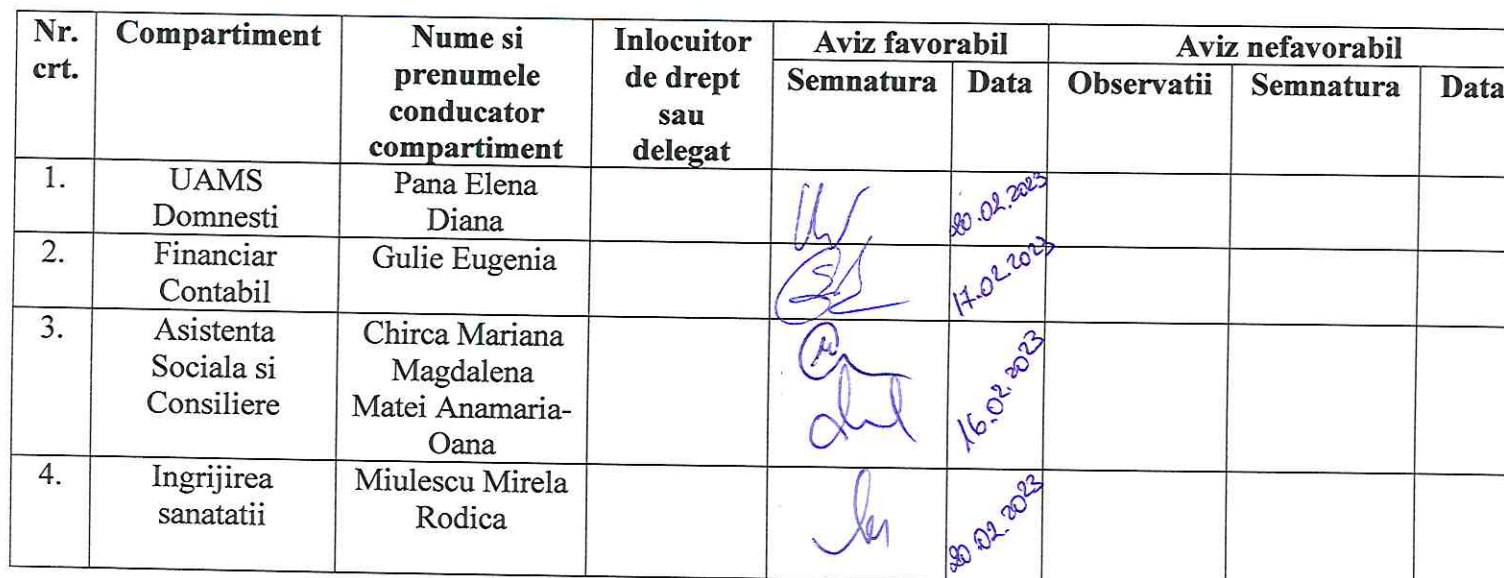 Nr. crt.	Compartiment	Nume si prenumele conducator compartiment	Inlocuitor de drept sau delegat	Aviz favorabil	Aviz nefavorabil
Semnatura	Data	Observatii	Semnatura	Data
1.	UAMS Domnesti	Pana Elena Diana	20.02.2023
2.	Financiar Contabil	Gulie Eugenia	17.02.2023
3.	Asistenta Sociala si Consiliere	Chirca Mariana Magdalena Matei Anamaria-Oana	16.02.2023
4.	Ingrijirea sanatatii	Miulescu Mirela Rodica	20.02.2023